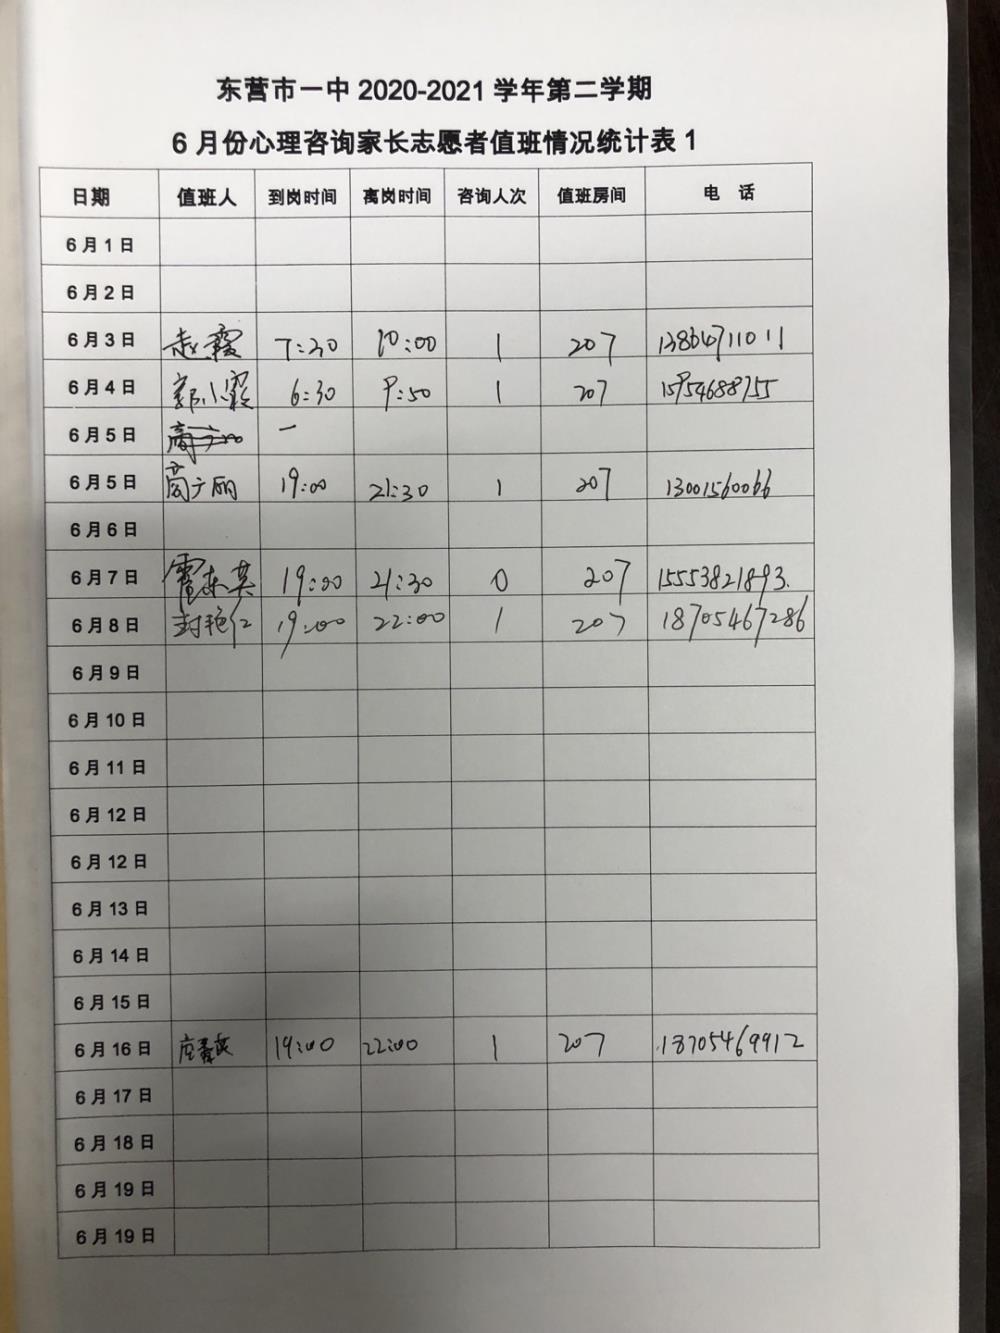 东营市一中 2020-2021 学年第二学期
6 月份心理咨询家长志愿者值班情况统计表 1
日期 值班人 到岗时间 离岗时间 咨询人次 值班房间 电 话
6 月 1 日
6 月 2 日
6 月 3 日 赵霞 7:30 10:00 1 207 13864711011
6 月 4 日 郭小霞 6:30 9:50 1 207 15954688755
6 月 5 日 一
6 月 5 日 广丽 19:00 21:30 1 207 13001560066
6 月 6 日
6 月 7 日 霍东英 19:00 21:30 0 207 15553821893.
6 月 8 日 封艳仁 19:00 22:00 1 207 18705467286
6 月 9 日
6 月 10 日
6 月 11 日
6 月 12 日
6 月 12 日
6 月 13 日
6 月 14 日
6 月 15 日
6 月 16 日 19:00 22:00 1 207 18705469912
6 月 17 日
6 月 18 日
6 月 19 日
6 月 19 日